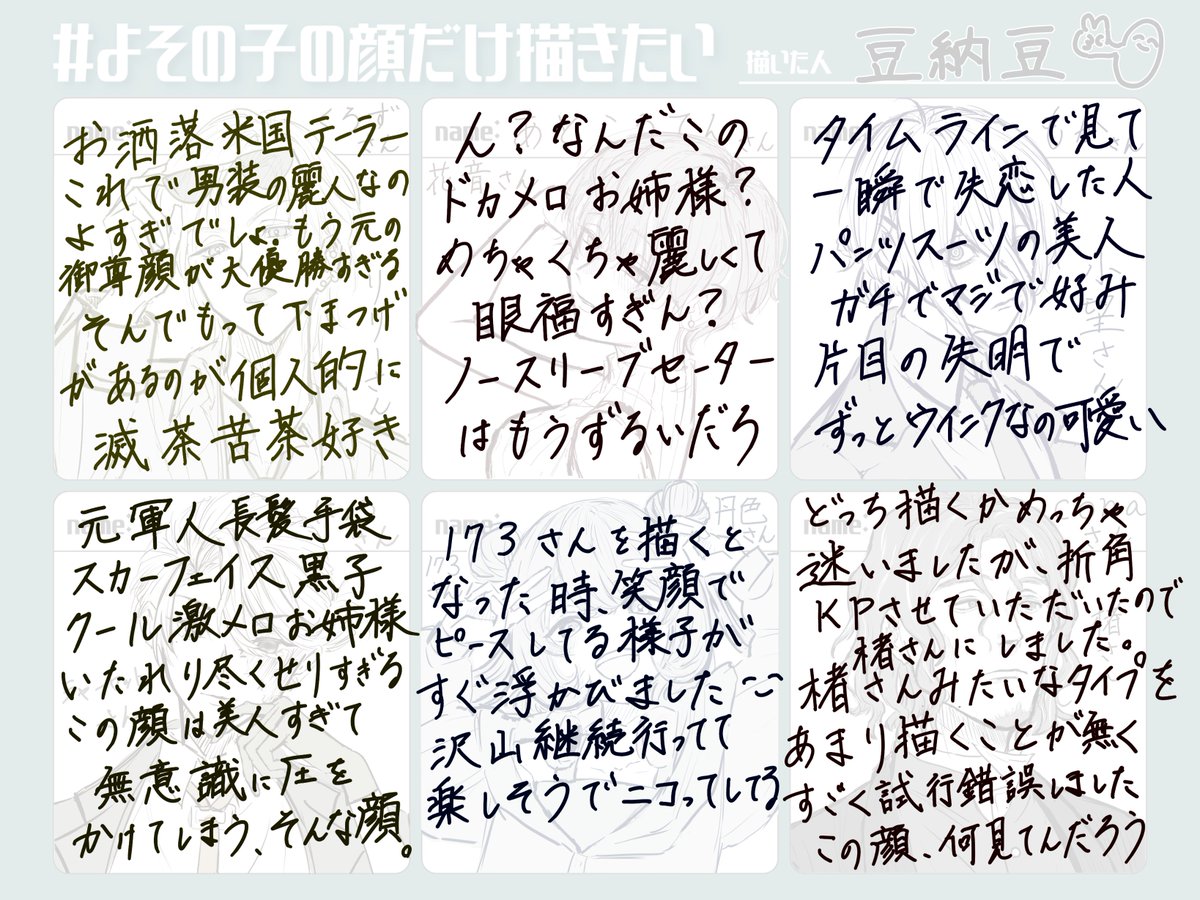 #よその子の顔だけ描きたい
描いた人 豆納豆
お洒落米国テーラー
これで男装の麗人なの
よすぎでしょ。もう元の
御尊顔が大優勝すぎる
そんでもって下まつげ
があるのが個人的に
滅茶苦茶好き
ん?なんだこの
ドカメロお姉様?
めちゃくちゃ麗しくて
眼福すぎん?
ノースリーブセーター
はもうずるいだろ
タイムラインで見て
一瞬で失恋した人
パンツスーツの美人
ガチでマジで好み
片目の失明で
ずっとウインクなの可愛い
元軍人長髪手袋
スカーフェイス黒子
クール激メロお姉様
いたれり尽くせりすぎる
この顔は美人すぎて
無意識に圧を
かけてしまう、そんな顔。
173さんを描くと
なった時、笑顔で
ピースしてる様子が
すぐ浮かびました
沢山継続行ってて
楽しそうでニコってしてる
どっち描くかめっちゃ
迷いましたが、折角
KPさせていただいたので
楮さんにしました。
楮さんみたいなタイプを
あまり描くことが無く
すごく試行錯誤しました
この顔、何見てんだろう
name:
name:
name:
name:
name:
花音さん
173
円色